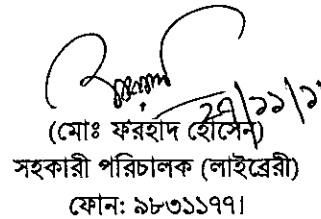 ২৭/১১/১
(মোঃ ফরহাদ হোসেন)
সহকারী পরিচালক (লাইব্রেরী)
ফোন: ৯৮৩১১৭৭।